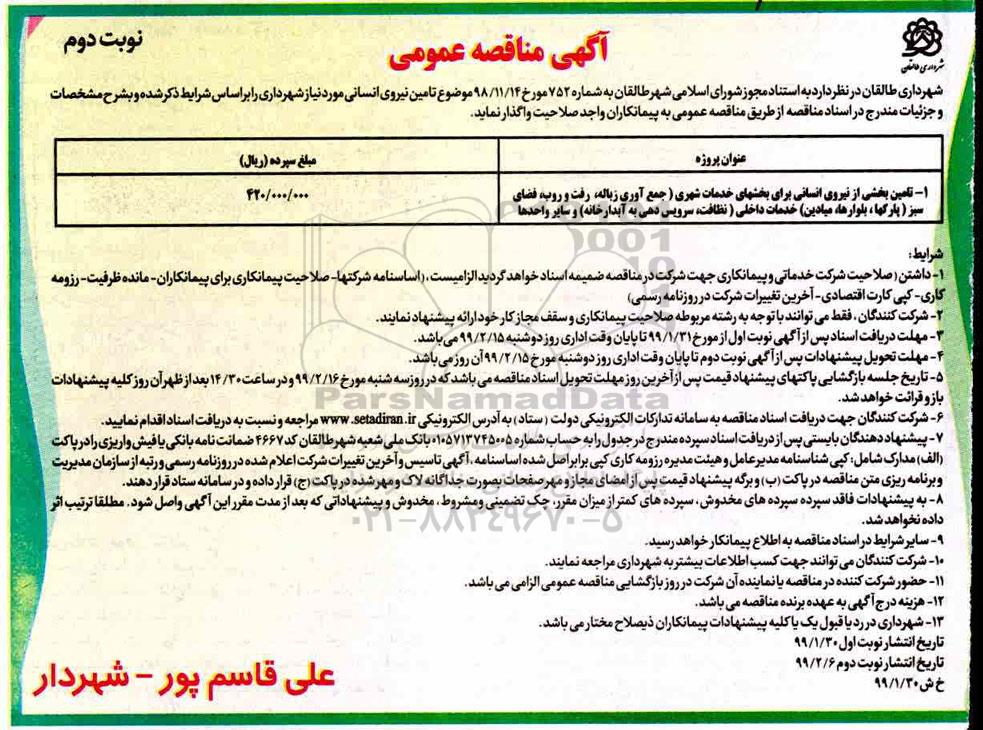 نوبت دوم
آگهی مناقصه عمومی
شهرداری طالقان
شهرداری طالقان در نظر دارد به استناد مجوز شورای اسلامی شهر طالقان به شماره ۷۵۲ مورخ ۹۸/۱۱/۱۴ موضوع تامین نیروی انسانی مورد نیاز شهرداری را بر اساس شرایط ذکر شده و بشرح مشخصات
و جزئیات مندرج در اسناد مناقصه از طریق مناقصه عمومی به پیمانکاران واجد صلاحیت واگذار نماید.
عنوان پروژه
مبلغ سپرده (ریال)
۱- تامین بخشی از نیروی انسانی برای بخشهای خدمات شهری ( جمع آوری زباله، رفت و روب، فضای
سبز ( پارکها ، بلوارها، میادین) خدمات داخلی ( نظافت، سرویس دهی به آبدارخانه) و سایر واحدها
۴۲۰/۰۰۰/۰۰۰
شرایط:
۱- داشتن ( صلاحیت شرکت خدماتی و پیمانکاری جهت شرکت در مناقصه ضمیمه اسناد خواهد گردید الزامیست، ( اساسنامه شرکتها- صلاحیت پیمانکاری برای پیمانکاران- مانده ظرفیت- رزومه
کاری- کپی کارت اقتصادی- آخرین تغییرات شرکت در روزنامه رسمی)
۲- شرکت کنندگان ، فقط می توانند با توجه به رشته مربوطه صلاحیت پیمانکاری و سقف مجاز کار خود ارائه پیشنهاد نمایند.
۳- مهلت دریافت اسناد پس از آگهی نوبت اول از مورخ ۹۹/۱/۳۱ تا پایان وقت اداری روز دوشنبه ۹۹/۲/۱۵ می باشد.
۴- مهلت تحویل پیشنهادات پس از آگهی نوبت دوم تا پایان وقت اداری روز دوشنبه مورخ ۹۹/۲/۱۵ آن روز می باشد.
۵- تاریخ جلسه بازگشایی پاکتهای پیشنهاد قیمت پس از آخرین روز مهلت تحویل اسناد مناقصه می باشد که در روز سه شنبه مورخ ۹۹/۲/۱۶ و در ساعت ۱۴/۳۰ بعد از ظهر آن روز کلیه پیشنهادات
باز و قرائت خواهد شد.
۶- شرکت کنندگان جهت دریافت اسناد مناقصه به سامانه تدارکات الکترونیکی دولت ( ستاد ) به آدرس الکترونیکی www.setadiran.ir مراجعه و نسبت به دریافت اسناد اقدام نمایید.
۷- پیشنهاد دهندگان بایستی پس از دریافت اسناد سپرده مندرج در جدول را به حساب شماره ۰۱۰۵۷۱۳۷۴۵۰۰۵ بانک ملی شعبه شهر طالقان کد ۴۶۶۷ ضمانت نامه بانکی یا فیش واریزی را در پاکت
(الف) مدارک شامل: کپی شناسنامه مدیرعامل و هیئت مدیره رزومه کاری کپی برابر اصل شده اساسنامه ، آگهی تاسیس و آخرین تغییرات شرکت اعلام شده در روزنامه رسمی و رتبه از سازمان مدیریت
و برنامه ریزی متن مناقصه در پاکت (ب) و برگه پیشنهاد قیمت پس از امضای مجاز و مهر صفحات بصورت جداگانه لاک و مهر شده در پاکت (ج) قرار داده و در سامانه ستاد قرار دهند.
۸- به پیشنهادات فاقد سپرده سپرده های مخدوش ، سپرده های کمتر از میزان مقرر، چک تضمینی و مشروط ، مخدوش و پیشنهاداتی که بعد از مدت مقرر این آگهی واصل شود. مطلقا ترتیب اثر
داده نخواهد شد.
۹- سایر شرایط در اسناد مناقصه به اطلاع پیمانکار خواهد رسید.
۱۰- شرکت کنندگان می توانند جهت کسب اطلاعات بیشتر به شهرداری مراجعه نمایند.
۱۱- حضور شرکت کننده در مناقصه یا نماینده آن شرکت در روز بازگشایی مناقصه عمومی الزامی می باشد.
۱۲- هزینه درج آگهی به عهده برنده مناقصه می باشد.
۱۳- شهرداری در رد یا قبول یک یا کلیه پیشنهادات پیمانکاران ذیصلاح مختار می باشد.
تاریخ انتشار نوبت اول ۹۹/۱/۳۰
تاریخ انتشار نوبت دوم ۹۹/۲/۶
خ ش ۹۹/۱/۳۰
علی قاسم پور - شهردار
ParsNamadData
۰۲۱-۸۸۳۴۹۶۷۰-۵